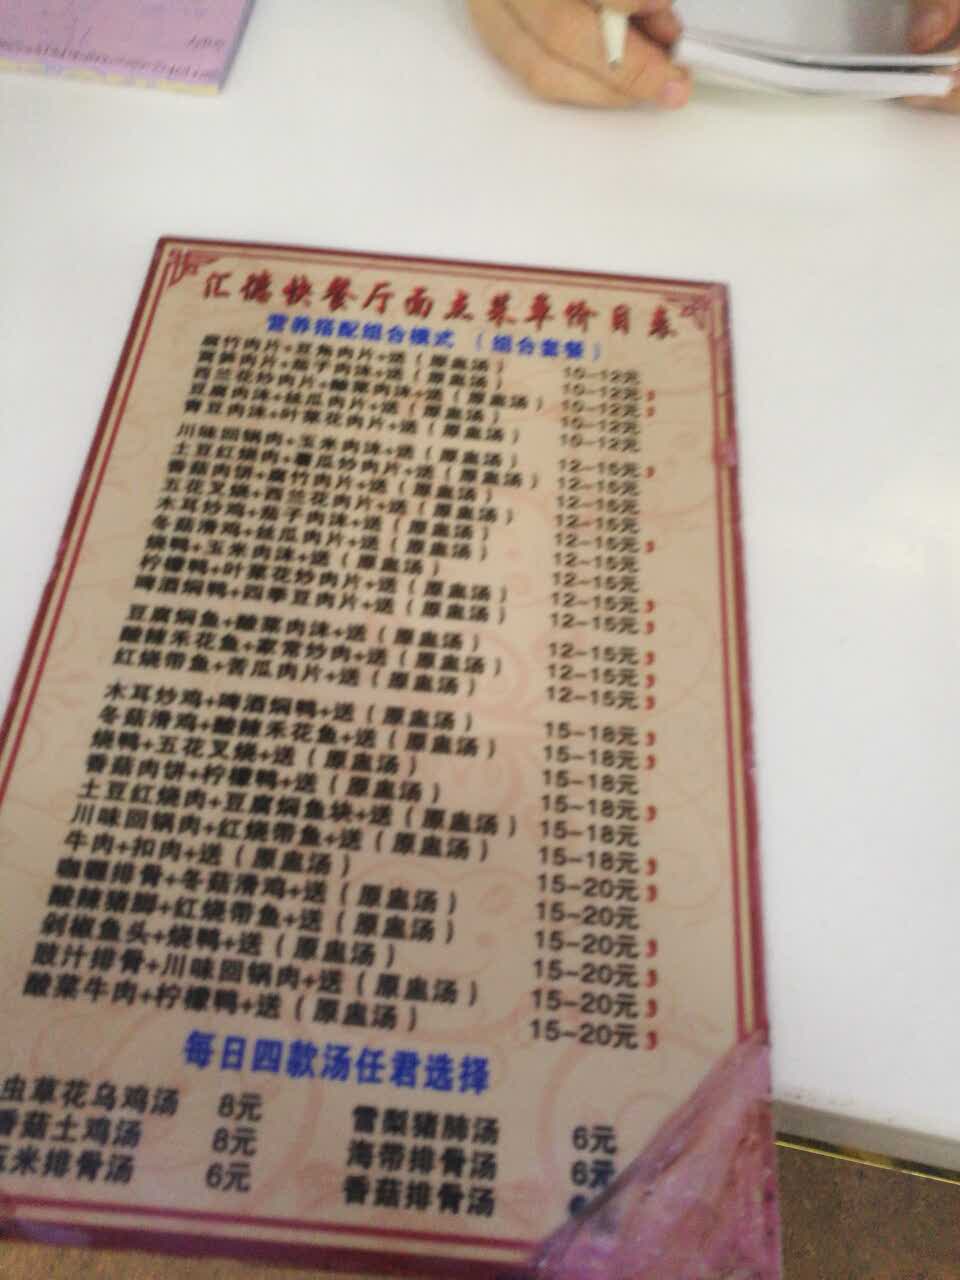 汇德快餐厅面点菜单价目表
营养搭配组合模式（组合套餐）
腐竹肉片+豆角肉片+送（原盅汤） 10-12元
莴笋肉片+茄子肉沫+送（原盅汤） 10-12元
西兰花炒肉片+酸菜肉沫+送（原盅汤） 10-12元
豆腐肉沫+丝瓜肉片+送（原盅汤） 10-12元
青豆肉沫+叶菜花肉片+送（原盅汤） 10-12元
川味回锅肉+玉米肉沫+送（原盅汤） 12-15元
土豆红烧肉+黄瓜炒肉片+送（原盅汤） 12-15元
香菇肉饼+腐竹肉片+送（原盅汤） 12-15元
五花叉烧+西兰花肉片+送（原盅汤） 12-15元
木耳炒鸡+茄子肉沫+送（原盅汤） 12-15元
冬菇滑鸡+丝瓜肉片+送（原盅汤） 12-15元
烧鸭+玉米肉沫+送（原盅汤） 12-15元
柠檬鸭+叶菜花炒肉片+送（原盅汤） 12-15元
啤酒焖鸭+四季豆肉片+送（原盅汤） 12-15元
豆腐焖鱼+酸菜肉沫+送（原盅汤） 12-15元
酸辣禾花鱼+家常炒肉+送（原盅汤） 12-15元
红烧带鱼+苦瓜肉片+送（原盅汤） 12-15元
木耳炒鸡+啤酒焖鸭+送（原盅汤） 15-18元
冬菇滑鸡+酸辣禾花鱼+送（原盅汤） 15-18元
烧鸭+五花叉烧+送（原盅汤） 15-18元
香菇肉饼+柠檬鸭+送（原盅汤） 15-18元
土豆红烧肉+豆腐焖鱼块+送（原盅汤） 15-18元
川味回锅肉+红烧带鱼+送（原盅汤） 15-18元
牛肉+扣肉+送（原盅汤） 15-20元
咖喱排骨+冬菇滑鸡+送（原盅汤） 15-20元
酸辣猪脚+红烧带鱼+送（原盅汤） 15-20元
剁椒鱼头+烧鸭+送（原盅汤） 15-20元
豉汁排骨+川味回锅肉+送（原盅汤） 15-20元
酸菜牛肉+柠檬鸭+送（原盅汤） 15-20元
每日四款汤任君选择
虫草花乌鸡汤 8元 雪梨猪肺汤 6元
香菇土鸡汤 8元 海带排骨汤 6元
玉米排骨汤 6元 香菇排骨汤